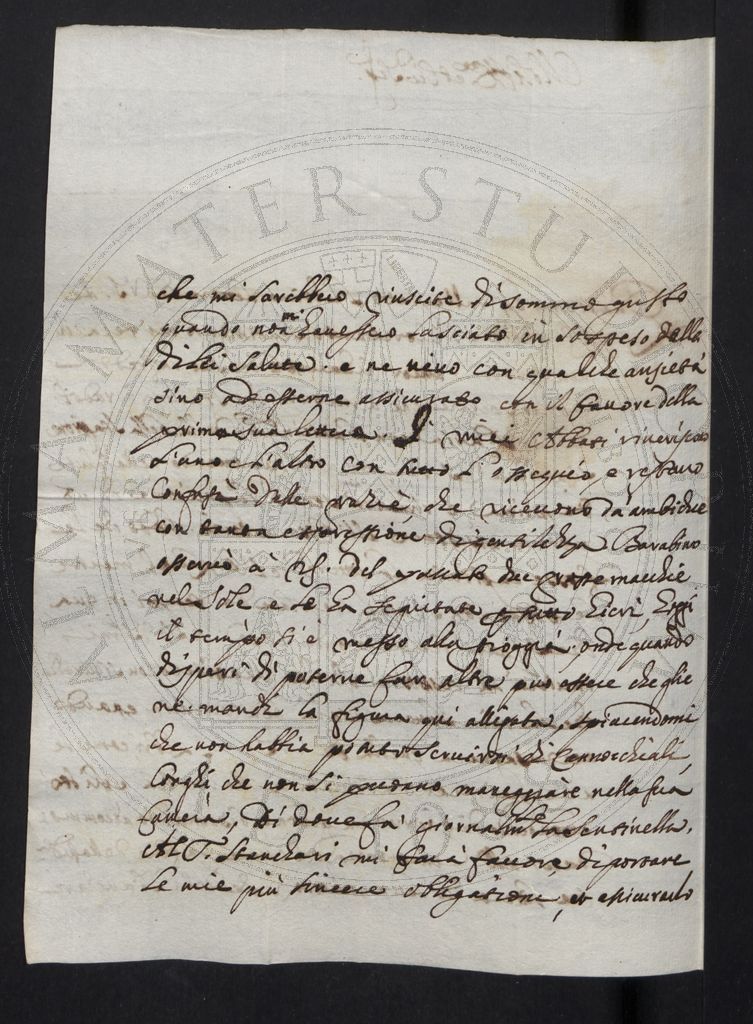 che mi sarebbero riuscite di sommo gusto
quando non mi havessero lasciato in sospeso della
di lei salute. e ne vivo con qualche ansietà
sino ad esserne assicurato con il favore della
prima sua lettera. I miei Abbati riveriscono
l'uno e l'altro con tutto l'ossequio, e restano
confusi delle grazie, che ricevono da ambidue
con tanta espressione di gentilezza. Barabino
osservò à 25. del passato due grosse macchie
nel sole e le ha seguitate p tutto hieri, hoggi
il tempo si è messo alla pioggia, onde quando
disperi di poterne far altre può essere che glie
ne mandi la figura qui allegata, spiacendomi
che non habbia potuto servirsi di Cannocchiali
longhi che non si possono maneggiare nella sua
camera, di dove fà giornalmte la sentinella.
Al S. Stancari mi farà favore di portare
le mie più sincere obligationi, et assicurarlo